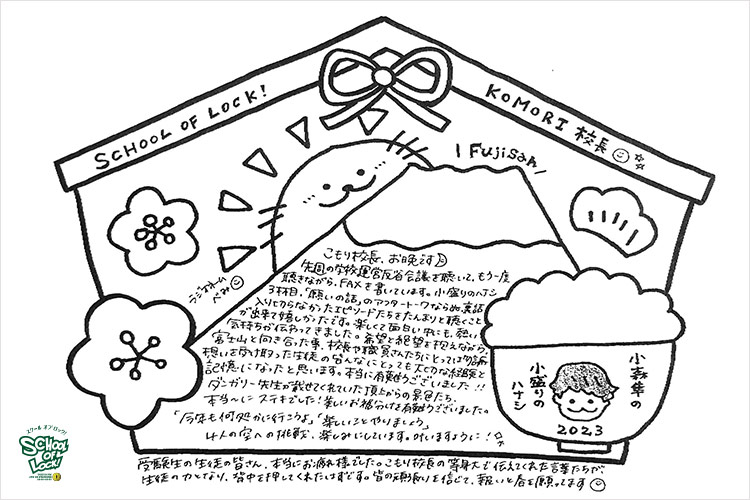 SCHOOL OF LOCK!
KOMORI 校長
Fujisan
ラジオネーム
べみ
こもり校長、お晩です
先週の学校運営反省会議を聴いて、もう一度
聴きながら、FAXを書いています。小盛りのハナシ
3杯目、「願いの話」のアフタートークならぬ裏話
入りきらなかったエピソードたちをたんまりと聴くこと
が出来て嬉しかったです。楽しくて面白い中にも、熱い
気持ちが伝わってきました。希望と絶望を抱えながら、
富士山と向き合った事、校長や職員さんたちにとっては勿論
想いを受け取った生徒の皆んなにとっても大切な経験と
記憶になったと思います。本当に有難うございました!!
ダンガリー先生が載せてくれていた頂上からの景色たち、
本当〜にステキでした!楽しいお裾分けも有難うございました。
「今年も何処かに行こうよ」「楽しいことやりましょう」
4人の空への挑戦、楽しみにしています。叶いますように!
受験生の生徒の皆さん、本当にお疲れ様でした。こもり校長の等身大で伝えてくれた言葉たちが、
生徒の力となり、背中を押してくれたはずです。皆の頑張りを信じて、報いと春を願ってます
小森隼の
小盛りの
ハナシ
2023
スクール オブ ロック!
SCHOOL
OF
LOCK!